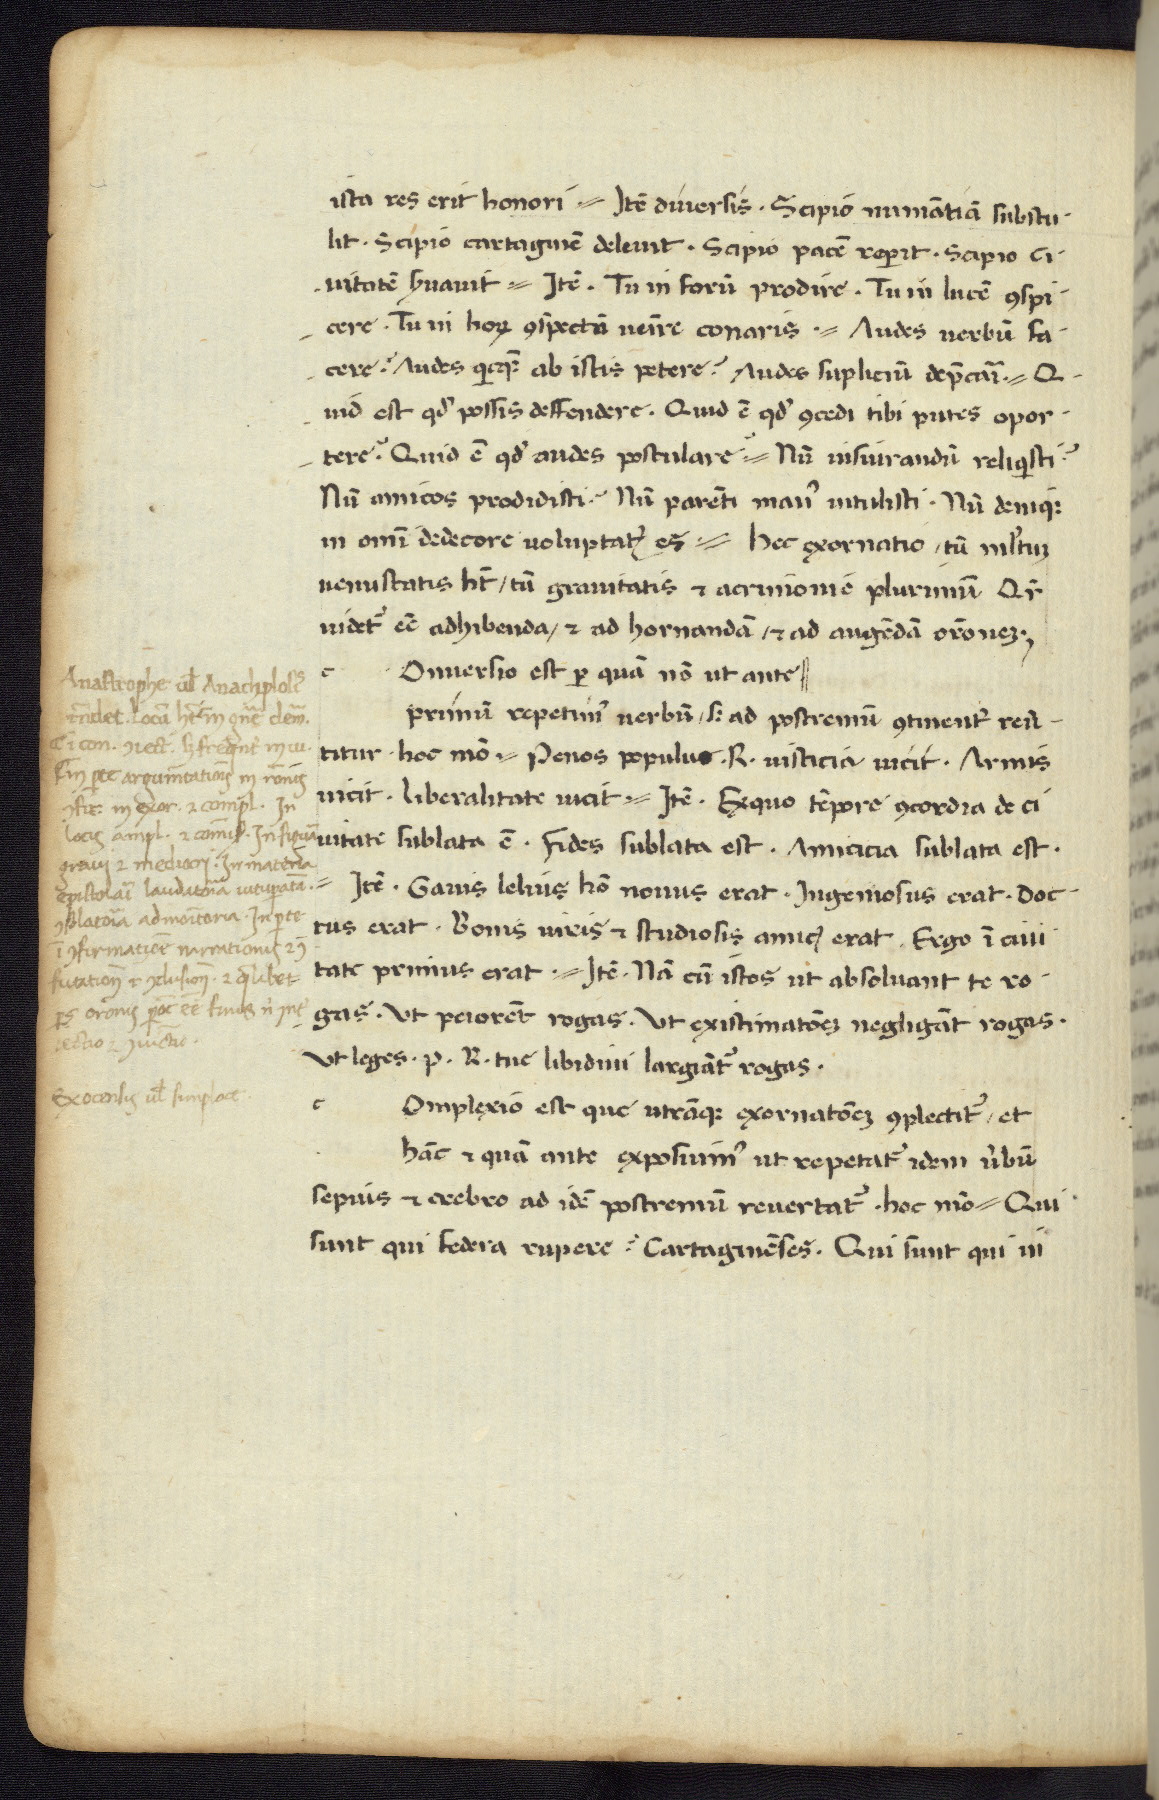 ista res erit honori = Itē diuersis · Scipio numātiā substu-
lit · Scipio cartaginē deleuit · Scipio pacē repperit · Scipio ci-
uitatē seruauit = Itē · Tu in forū prodire · Tu in lucē ꝯspi-
cere · Tu in hoꝝ ꝯspectū uenire conaris · = Audes uerbū fa-
cere? Audes ab istis petere? Audes supliciū = Q
uid est qđ possis deffendere · Quid ē qđ ꝯcedi tibi putes opor-
tere? Quid ē qđ audes postulare? = Nū iusiurandū reliqisti?
Nū amicos prodidisti? Nū parēti man⁹ intulisti · Nū deniqꝫ
in omī dedecore uolutatꝰ es = hec exornatio / tū
uenustatis hꝫ / tū grauitatis ⁊ acrimonie plurimū Qr̄
uidet᷑ eē adhibenda / ⁊ ad hornandā / ⁊ ad augēdā orōnez ·
c Onuersio est ꝑ quā nō ut ante
primū repetim⁹ uerbū / sꝫ ad postremū ꝯtinent᷑ reu-
titur · hoc mō = Penos populus · R · iusticia uicit · Armis
uicit · liberalitate uicit = Itē · Exquo tēpore ꝯcordia de ci
uitate sublata ē · fides sublata est · Amicicia sublata est ·
= Itē · Gaius lelius hō nouus erat · Ingeniosus erat · Doc-
tus erat · Bonis uiris ⁊ studiosis amicꝰ erat · Ergo ī ciui
tate primus erat · = Itē · Nā cū istos ut absoluant te ro-
gas · Ut peiorēt rogas · Ut existimatōez negligāt rogas ·
Ut leges · p · R · tue libidini largiāt᷑ rogas ·
c Omplexio est que utrāqꝫ exornatōez ꝯplectit᷑ / et
hāc ⁊ quā ante exposuim⁹ ut repetat᷑ idem ūbū
sepius ⁊ crebro ad idē postremū reuertat᷑ · hoc mō = Qui
sunt qui federa rupere? Cartaginēses · Qui sunt qui in
Anastrophe ul̄
locū
arguīntationis in
In
locis ampl · ⁊ In figura
graui ⁊ mediocri · In materia
epistolari laudatoria
admonitoria · In
ī ꝯfirmatiōe narrationis
⁊ ꝯclusiōi · ⁊ qͣlibet
orōnis eē